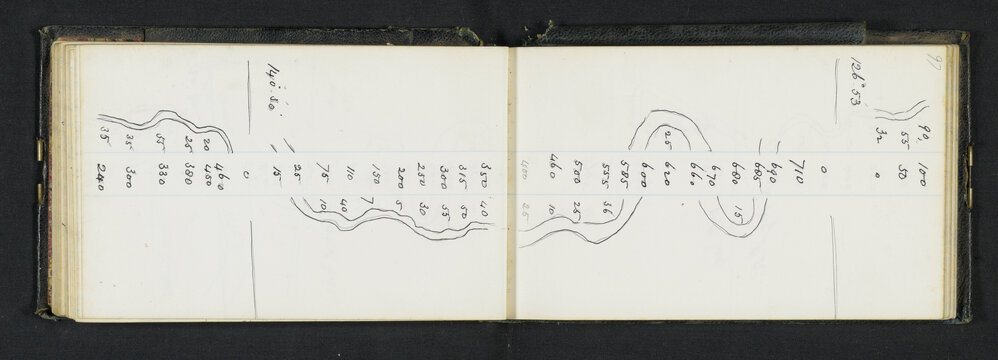 97
90, 100
55 50
32 0
126° 53'
0
710
690
685
680 15
670
660
25 620
600
585
555 36
500 25
460 10
400 25
350 40
315 50
300 55
250 30
200 5
150 7
110 40
75 10
25
15
140° 50'
0
460
20 450
25 380
55 330
35 300
35 240